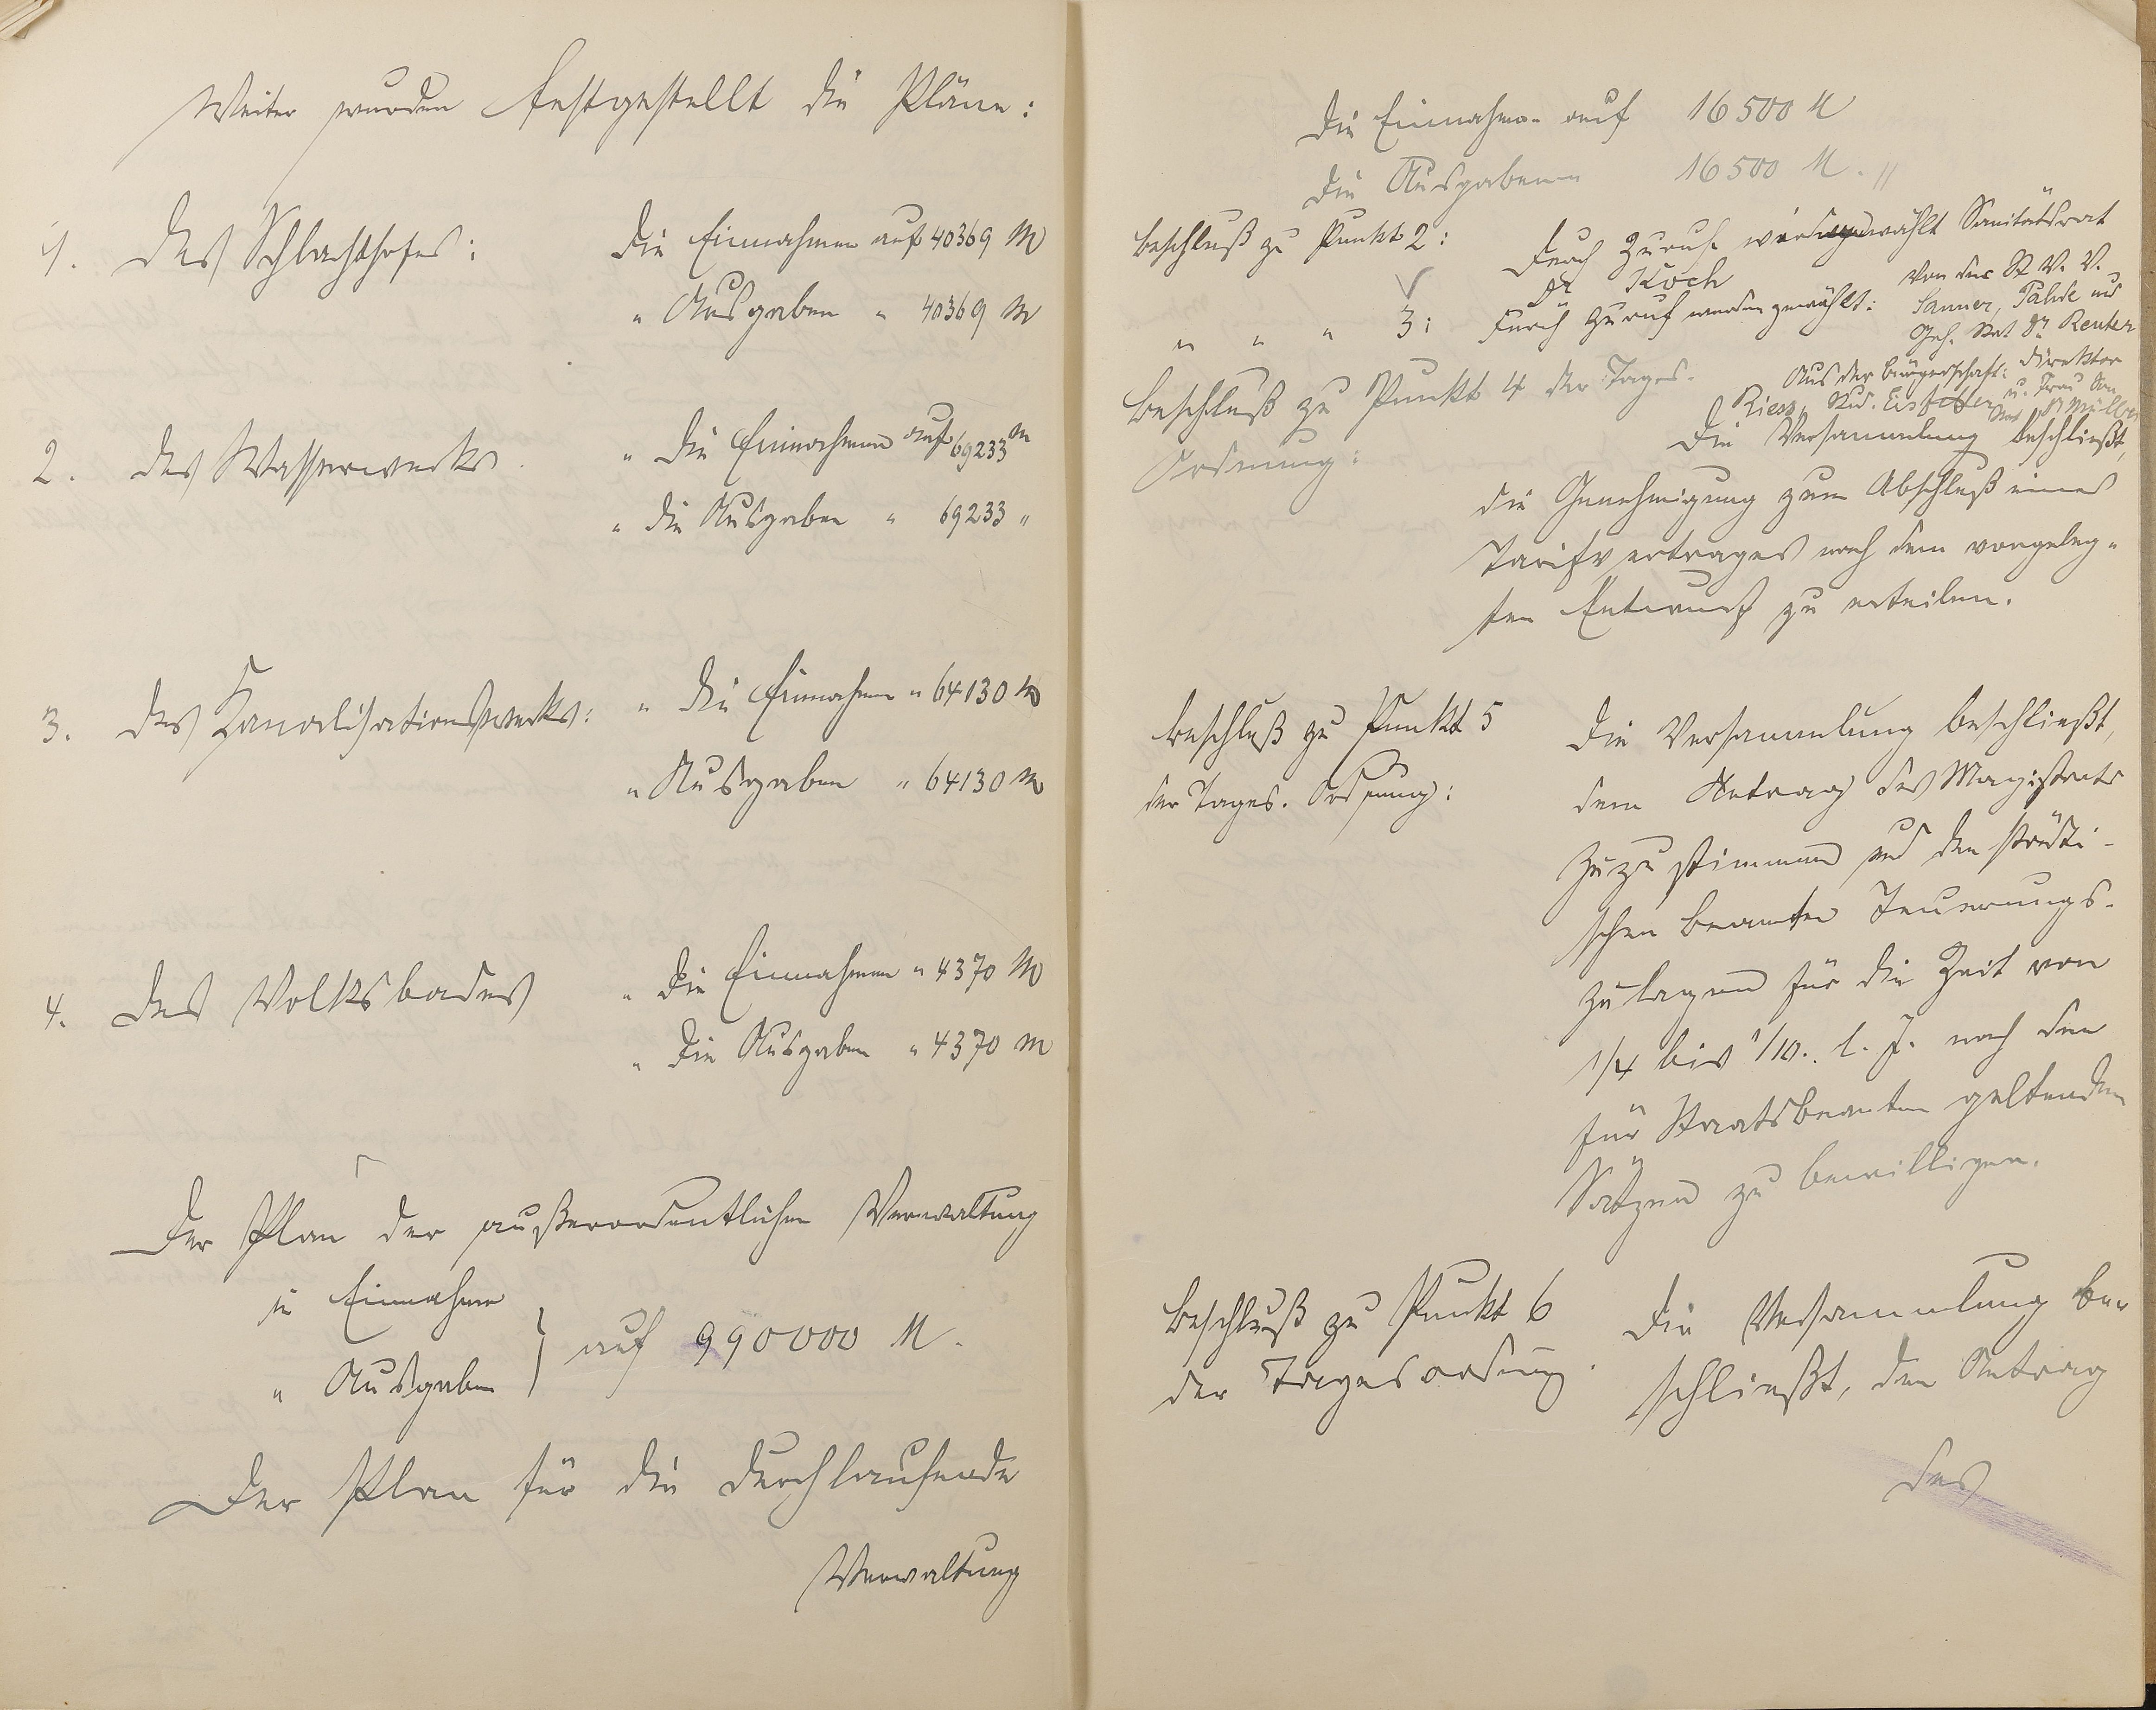 Weiter wurden festgestellt die Pläne:
1. des Schlachthofes: die Einnahmen auf 40369 M
" Ausgaben " 40369 M
2. des Wasserwerks " die Einnahmen auf 69233 M
" die Ausgaben " 69233 "
3. des Kanalisationswerks: " die Einnahmen " 64130 M
" Ausgaben " 64130 M
4. des Volksbades " die Einnahmen " 4370 M
" die Ausgaben " 4370 M
Der Plan der außerordentlichen Verwaltung
in Einnahme
" Ausgaben } auf 990000 M.
Der Plan für die durchlaufende
Verwaltung
die Einnahmen auf 16500 M
die Ausgaben " 16500 M. "
Beschluß zu Punkt 2: Durch Zuruf wird gewählt Sanitätsrat
Dr Koch
" " " 3: Durch Zuruf wurden gewählt: Von der St. V. V.
Sanner, Pahde und
Geh. Rat Dr. Reuter
Aus der Bürgerschaft: Direktor
Riess, u. Frau San.
Rat Dr Müller
Beschluß zu Punkt 4 der Tages-
Ordnung: Die Versammlung beschließt,
die Genehmigung zum Abschluß eines
Tarifvertrages nach dem vorgeleg-
ten Entwurf zu erteilen.
Beschluß zu Punkt 5
der Tages-Ordnung: Die Versammlung beschließt,
dem Antrag des Magistrats
zuzustimmen und den städti-
schen Beamten Teuerungs-
zulagen für die Zeit von
1/4 bis 1/10. l. J. nach den
für Staatsbeamten geltenden
Sätzen zu bewilligen.
Beschluß zu Punkt 6
der Tagesordnung. Die Versammlung be-
schließt, den Antrag
des